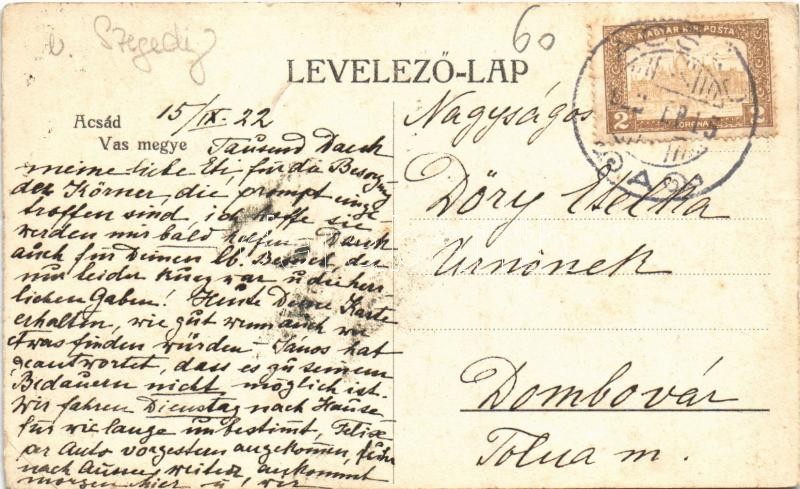 v. Szegedig
60
LEVELEZŐ-LAP
MAGYAR KIR. POSTA
2 KORONA 2
ACSÁD
15/IX. 22
Acsád
Vas megye
Tausend Dank
meine liebe Eti, für die Besorgung
der Körner, die prompt einge
troffen sind, ich hoffe sie
werden mir bald helfen. Dank
auch für Deinen lb. Besuch der
nur leider kurz war u die herr-
lichen Gaben! Heute Deine Karte
erhalten, wie gut wenn auch wir
etwas finden würden – János hat
geantwortet, dass es zu seinem
Bedauern nicht möglich ist.
Wir fahren Dienstag nach Hause
für wie lange unbestimmt, Felix
per Auto vorgestern angekommen, fuhr
nach weiter, ankommt
morgen hier u. wer
Nagyságos
Dőry Etelka
Úrnőnek
Dombovár
Tolna m.